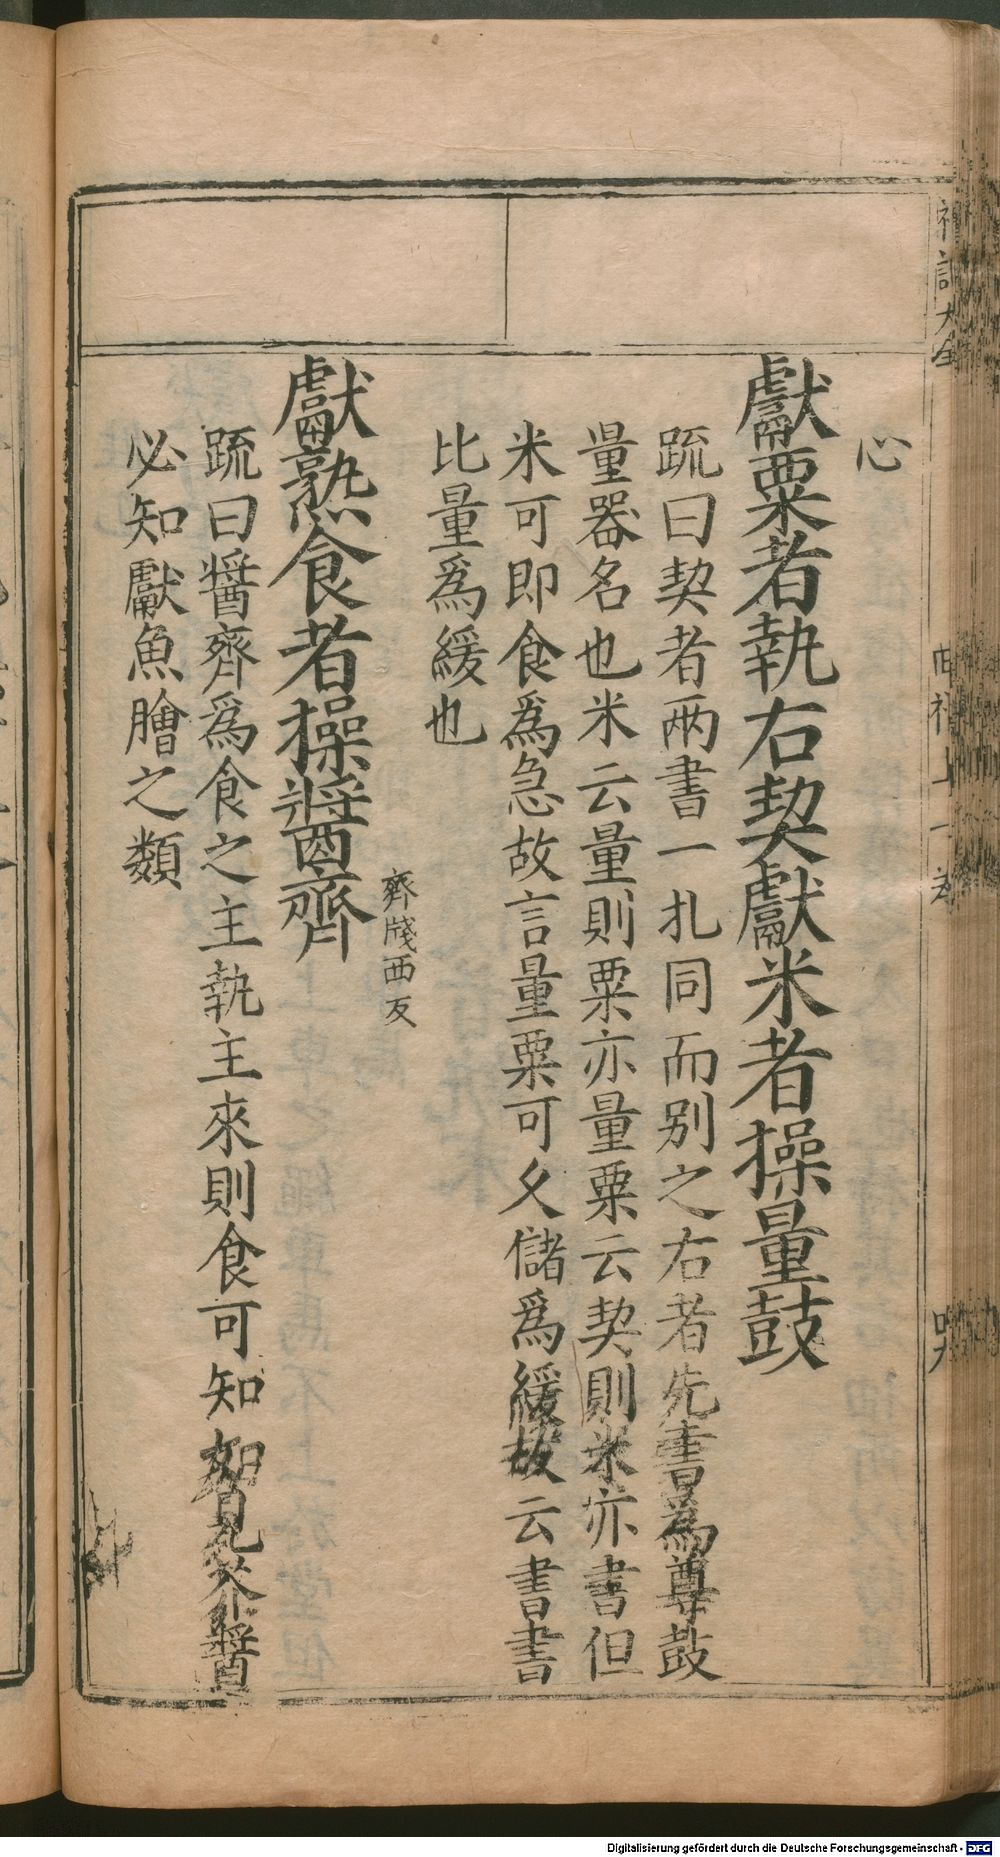 心
獻粟者執右契獻米者操量鼓
䟽曰契者两書一扎同而别之右者先書為尊鼓
量器名也米云量則粟亦量粟云契則米亦書但
米可即食爲急故言量粟可久儲爲緩故云書書
比量爲緩也
齊牋西反
獻熟食者操醬齊
䟽曰醬齊爲食之主執主來則食可知如見芥醬
必知獻魚膾之類
Digitalisierung gefördert durch die Deutsche Forschungsgemeinschaft - DFG